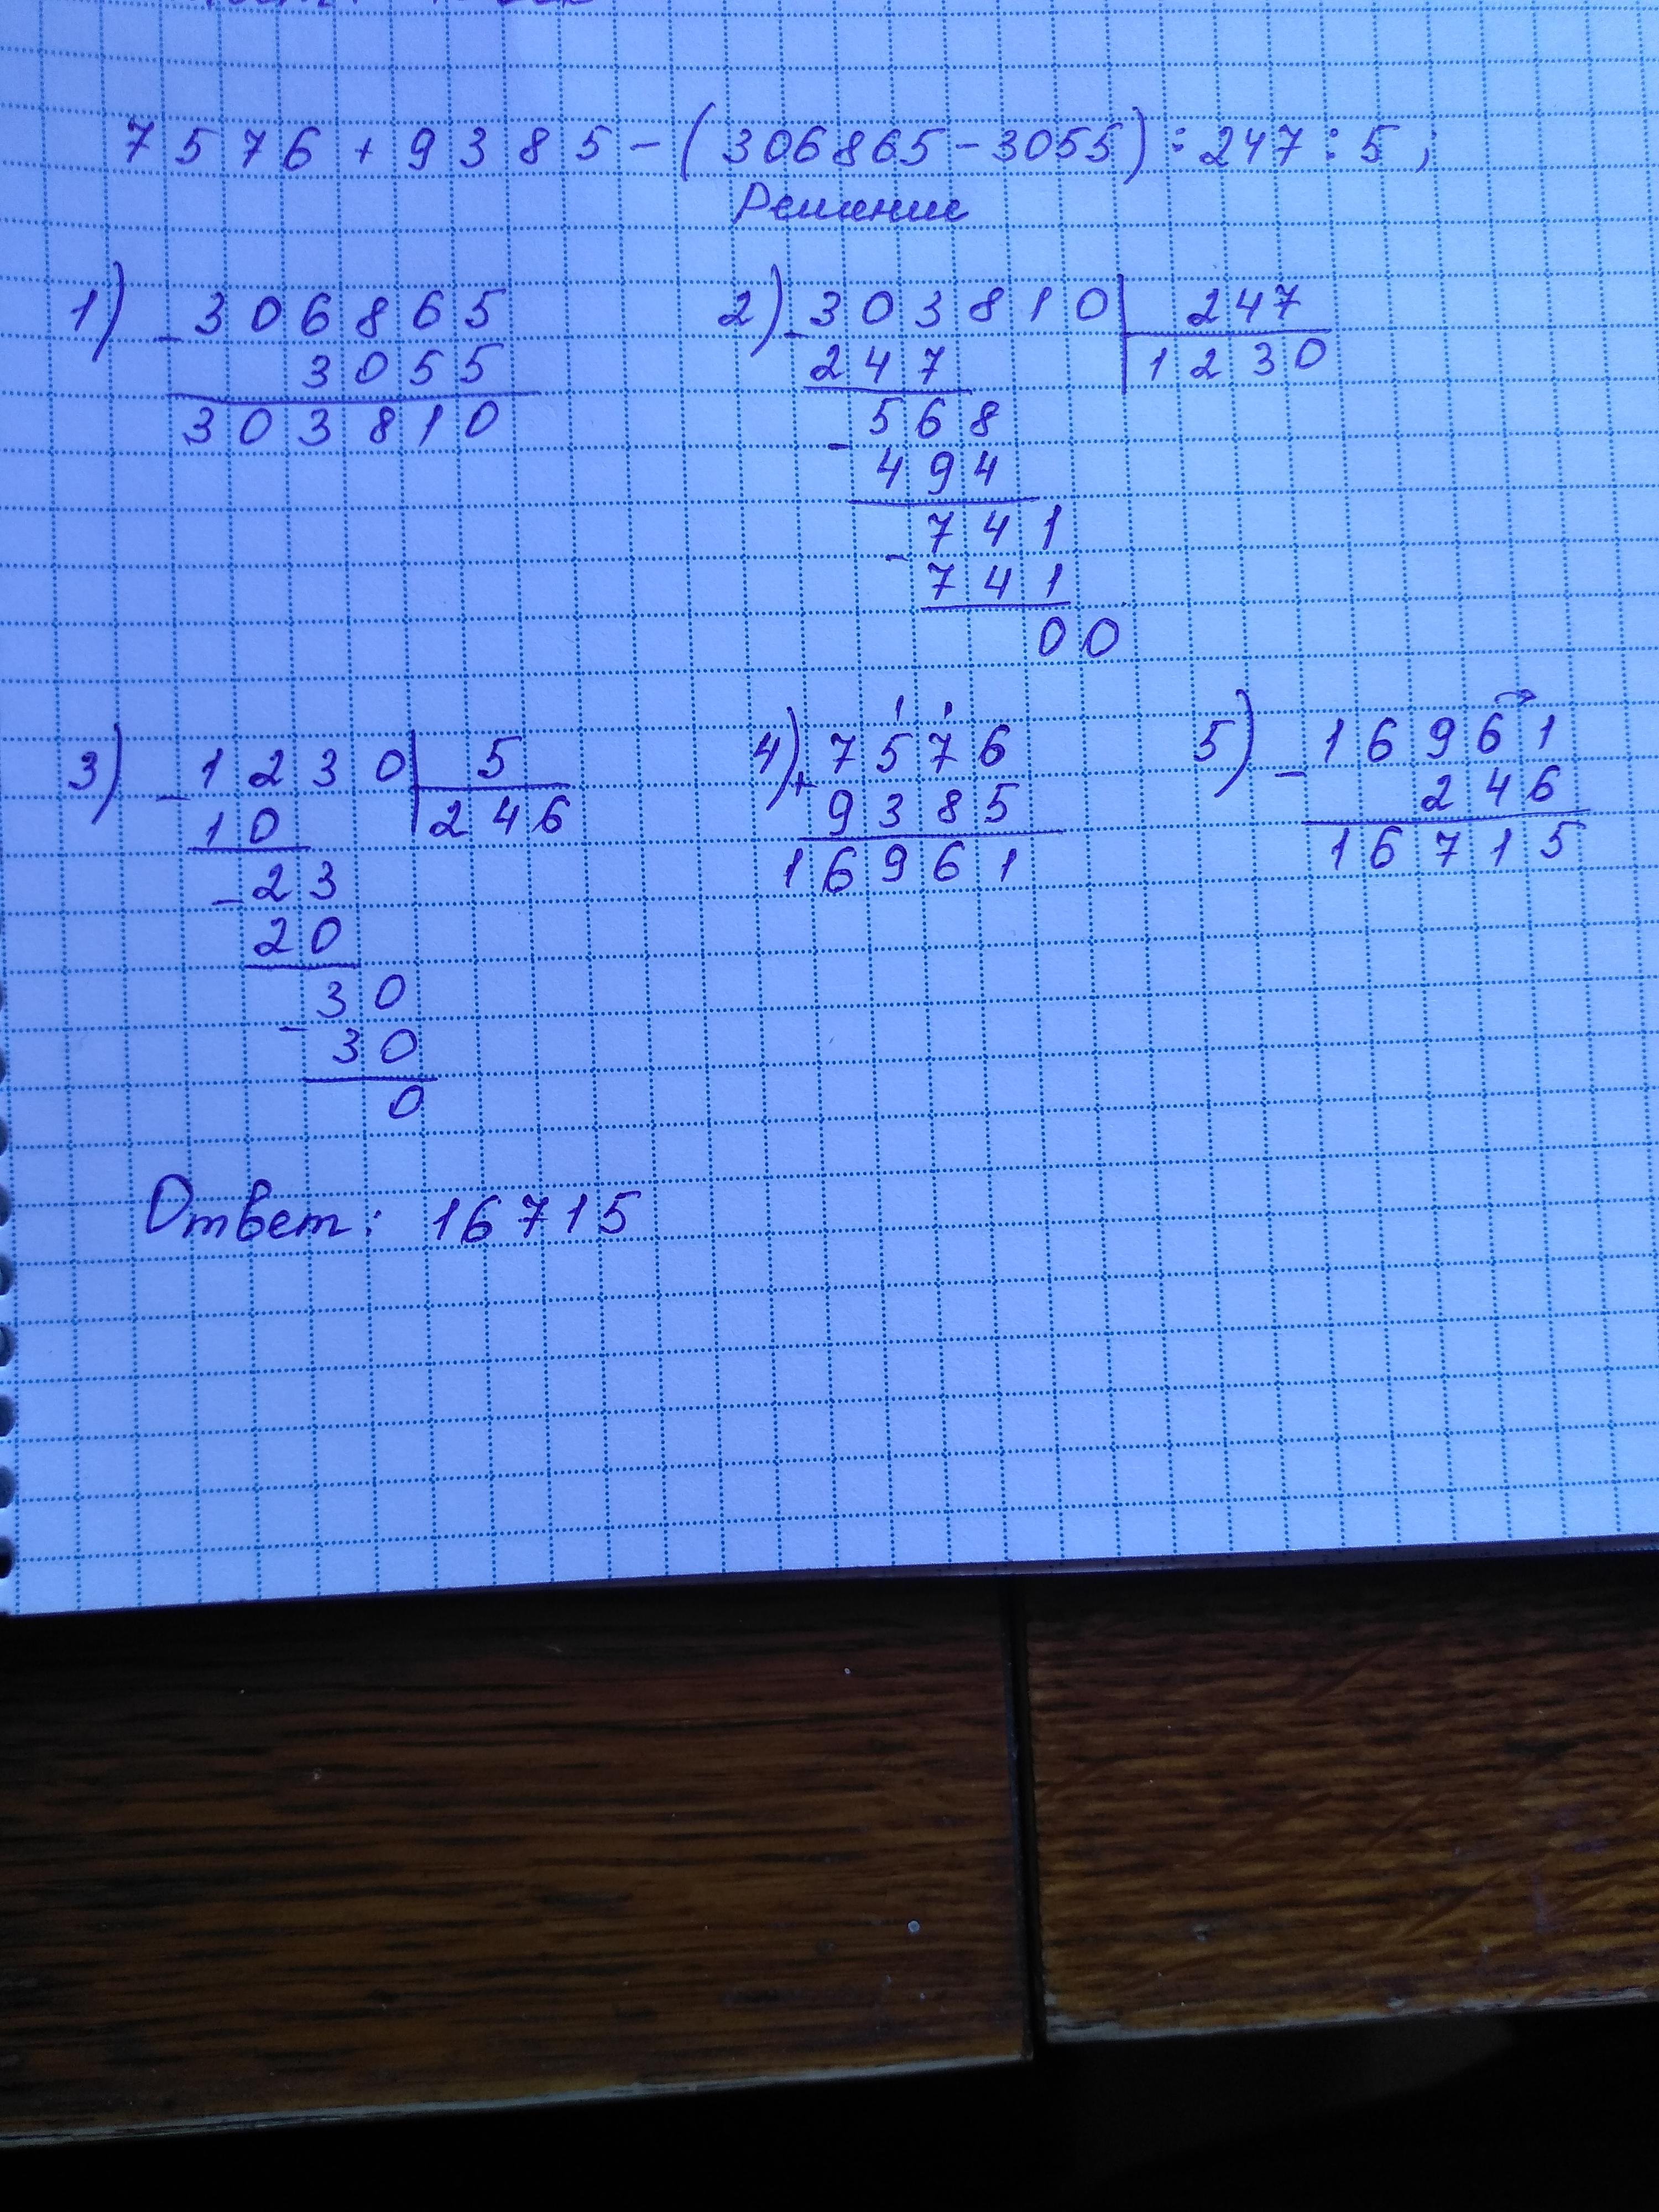 7576+9385-(306865-3055):247:5;
Решение
1) -306865
3055
303810
2) -303810 | 247
247 | 1230
-568
494
-741
741
00
3) -1230 | 5
10 | 246
-23
20
-30
30
0
4) 1 1
+7576
9385
16961
5) -16961
246
16715
Ответ: 16715